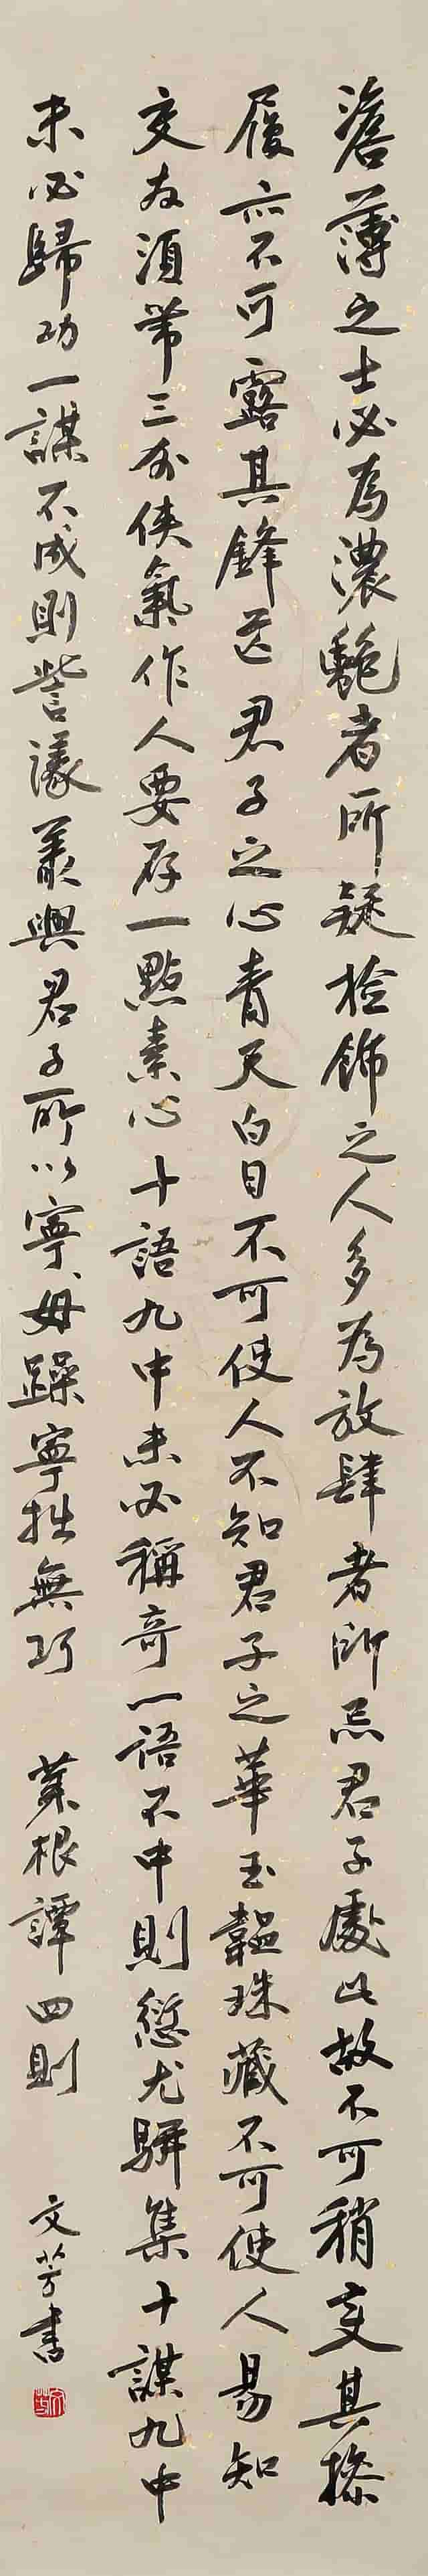 澹薄之士必為濃艷者所疑檢飾之人多為放肆者所忌君子處此故不可稍變其操
履亦不可露其鋒芒君子之心青天白日不可使人不知君子之華玉韞珠藏不可使人易知
交友須帶三分俠氣作人要存一點素心十語九中未必稱奇一語不中則愆尤駢集十謀九中
未必歸功一謀不成則訾議叢興君子所以寧毋躁寧拙無巧
菜根譚四則
文芳書